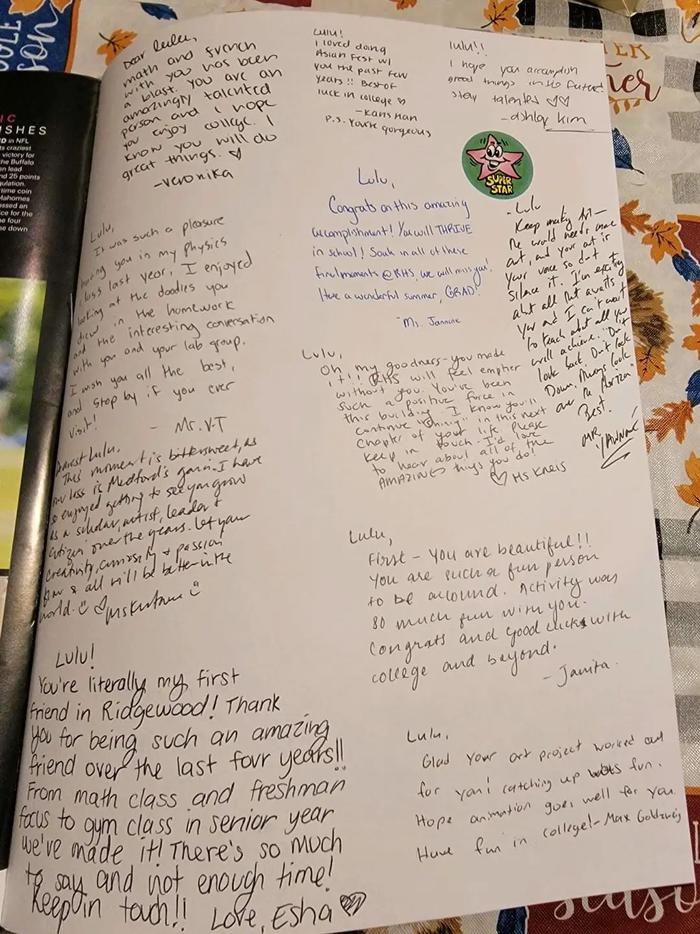 Dear Lulu,
math and french
with you has been
a blast. You are an
amazingly talented
person and I hope
you enjoy college. I
know you will do
great things. ♡
-Veronika
Lulu!
I loved doing
Asian Fest w/
you the past few
years!! Best of
luck in college ♡
P.S. You're gorgeous
lulu!!
I hope you accomplish
great things in the future!
stay talented ♡♡
-ashley kim
SUPER
STAR
Lulu,
It was such a pleasure
having you in my physics
class last year, I enjoyed
looking at the doodles you
drew in the homework
and the interesting conversation
with you and your lab group.
I wish you all the best,
and stop by if you ever
visit!
- Mr. VT
Lulu,
Congrats on this amazing
accomplishment! You will THRIVE
in school! Soak in all of these
final moments @RHS, we will miss you!
Have a wonderful summer, GRAD!
-Ms. Jannine
- Lulu
Keep making art-
The world needs more
art, and your art is
your voice so don't
silence it. I'm excited
about all that awaits
you and I can't wait
to teach about all you
will achieve. "Don't
look back. Don't look
Down. Always look
on the Horizon."
Best.
MR.
Lulu,
Oh my goodness-you made
it!! RHS will feel emptier
without you. You've been
such a positive force in
this building. I know you'll
continue "shining" in this next
chapter of your life. Please
keep in touch-I'd love
to hear about all of the
AMAZING things you do!
♡ Ms Kneis
Dearest Lulu,
This moment is bittersweet, as
our loss is Medford's gain. I have
so enjoyed getting to see you grow
as a scholar, artist, leader &
citizen over the years. Let your
creativity, curiosity & passion
flow & all will be better in the
world. ☺ ♡
Lulu,
First - You are beautiful!!
You are such a fun person
to be around. Activity was
so much fun with you.
Congrats and good luck with
college and beyond.
- Janita.
Lulu!
You're literally my first
friend in Ridgewood! Thank
you for being such an amazing
friend over the last four years!!
From math class and freshman
focus to gym class in senior year
we've made it! There's so much
to say and not enough time!
Keep in touch!! Love, Esha ♡
Lulu,
Glad your art project worked out
for you! Catching up was fun.
Hope animation goes well for you.
Have fun in college! - Max
IC
SHES
D in NFL
s craziest
victory for
the Buffalo
en lead
nd 25 points
gulation.
time coin
Mahomes
ssed an
ce for the
e four
e down